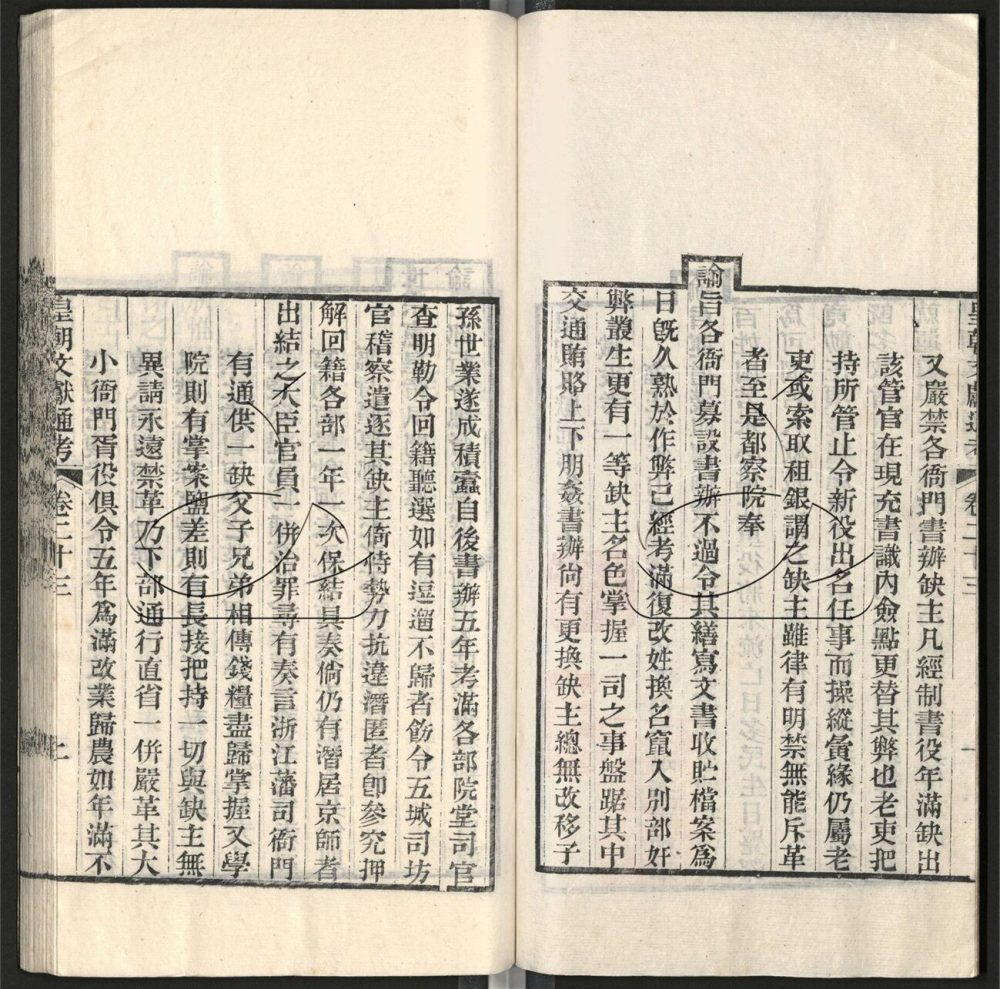 又嚴禁各衙門書辦缺主凡經制書役年滿缺出
該管官在現充書識內僉點更替其弊也老吏把
持所管止令新役出名任事而操縱夤緣仍屬老
吏或索取租銀謂之缺主雖律有明禁無能斥革
者至是都察院奉
諭旨各衙門募設書辦不過令其繕寫文書收貯檔案為
日旣久熟於作弊已經考滿復改姓換名竄入別部奸
弊叢生更有一等缺主名色掌握一司之事盤踞其中
交通賄賂上下朋姦書辦尙有更換缺主總無改移子
孫世業遂成積蠧自後書辦五年考滿各部院堂司官
查明勒令回籍聽選如有逗遛不歸者飭令五城司坊
官稽察遣逐其缺主倚恃勢力抗違潛匿者卽參究押
解回籍各部一年一次保結具奏倘仍有潛居京師者
出結之大臣官員一併治罪尋有奏言浙江藩司衙門
有通供一缺父子兄弟相傳錢糧盡歸掌握又學
院則有掌案鹽差則有長接把持一切與缺主無
異請永遠禁革乃下部通行直省一併嚴革其大
小衙門胥役俱令五年爲滿改業歸農如年滿不
皇朝文獻通考 卷二十三